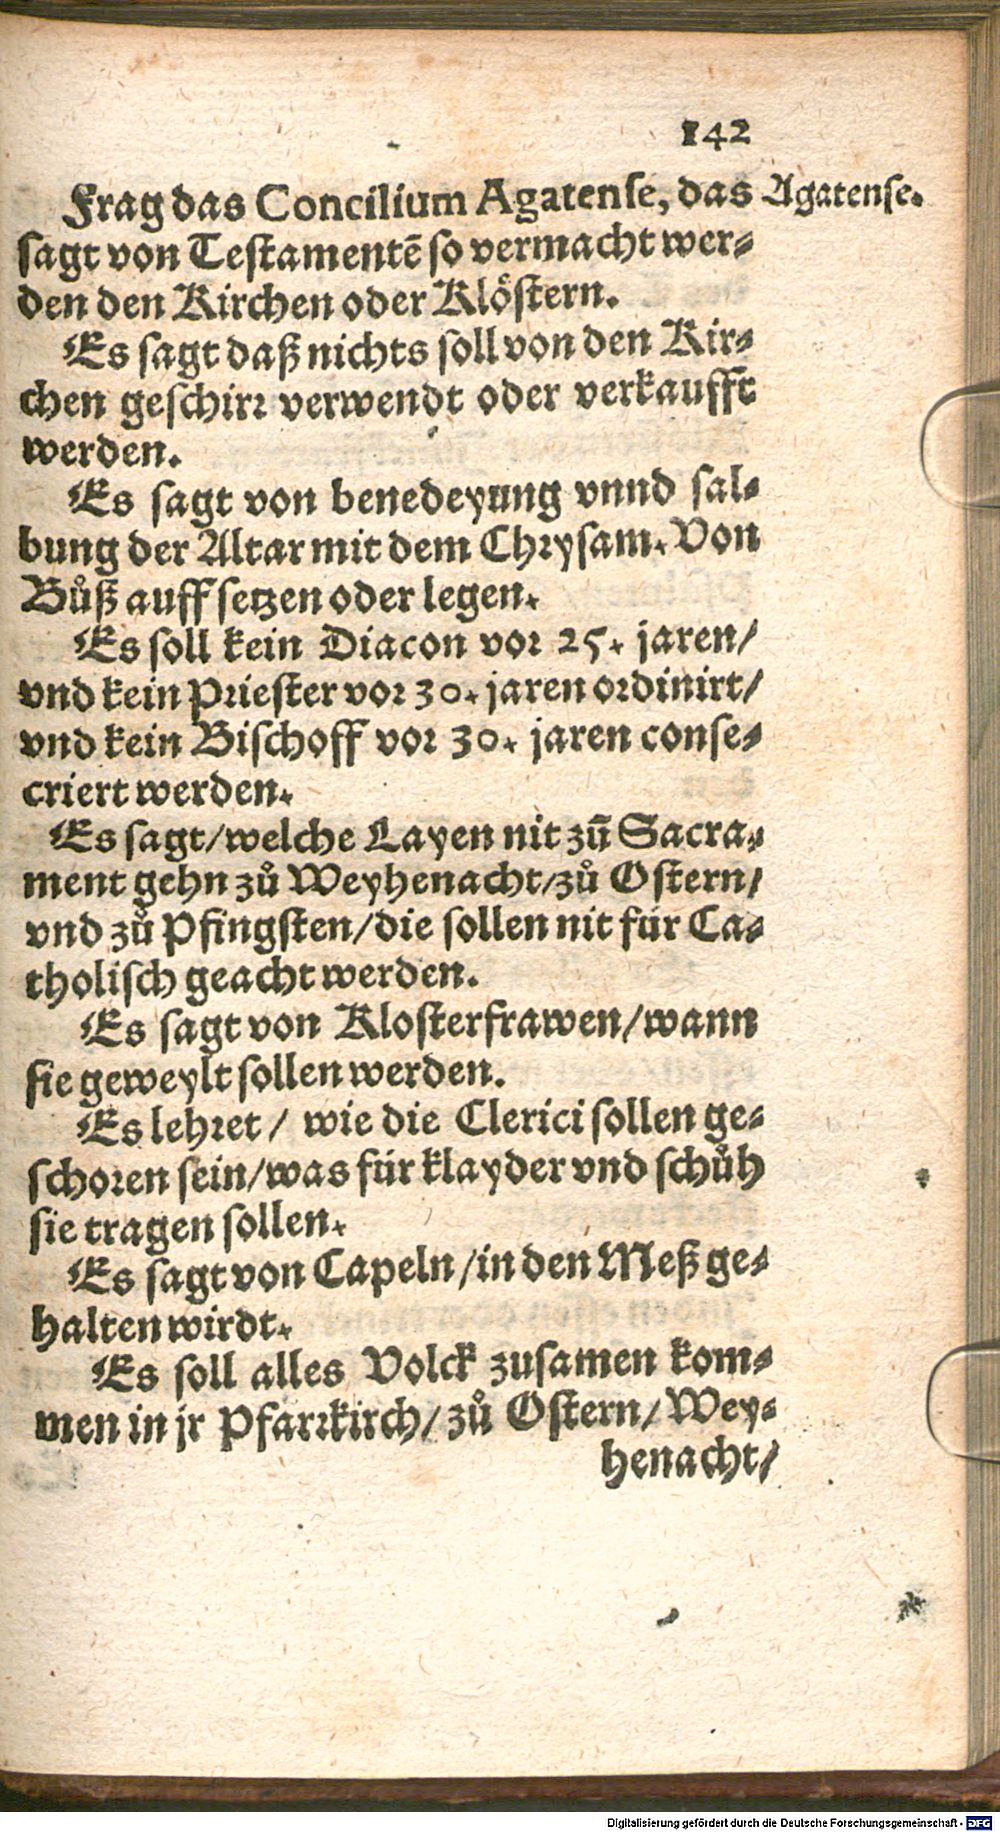 142
Frag das Concilium Agatense, das Agatense.
sagt von Testamentē so vermacht wer⸗
den den Kirchen oder Klöstern.
Es sagt daß nichts soll von den Kir⸗
chen geschirr verwendt oder verkaufft
werden.
Es sagt von benedeyung vnnd sal⸗
bung der Altar mit dem Chrysam. Von
Bůß auff setzen oder legen.
Es soll kein Diacon vor 25. jaren/
vnd kein Priester vor 30. jaren ordinirt/
vnd kein Bischoff vor 30. jaren conse⸗
criert werden.
Es sagt/welche Layen nit zū Sacra⸗
ment gehn zů Weyhenacht/zů Ostern/
vnd zů Pfingsten/die sollen nit für Ca⸗
tholisch geacht werden.
Es sagt von Klosterfrawen/wann
sie geweylt sollen werden.
Es lehret/ wie die Clerici sollen ge⸗
schoren sein/was für klayder vnd schůh
sie tragen sollen.
Es sagt von Capeln/in den Meß ge⸗
halten wirdt.
Es soll alles Volck zusamen kom⸗
men in jr Pfarrkirch/zů Ostern/Wey⸗
henacht/
Digitalisierung gefördert durch die Deutsche Forschungsgemeinschaft - DFG